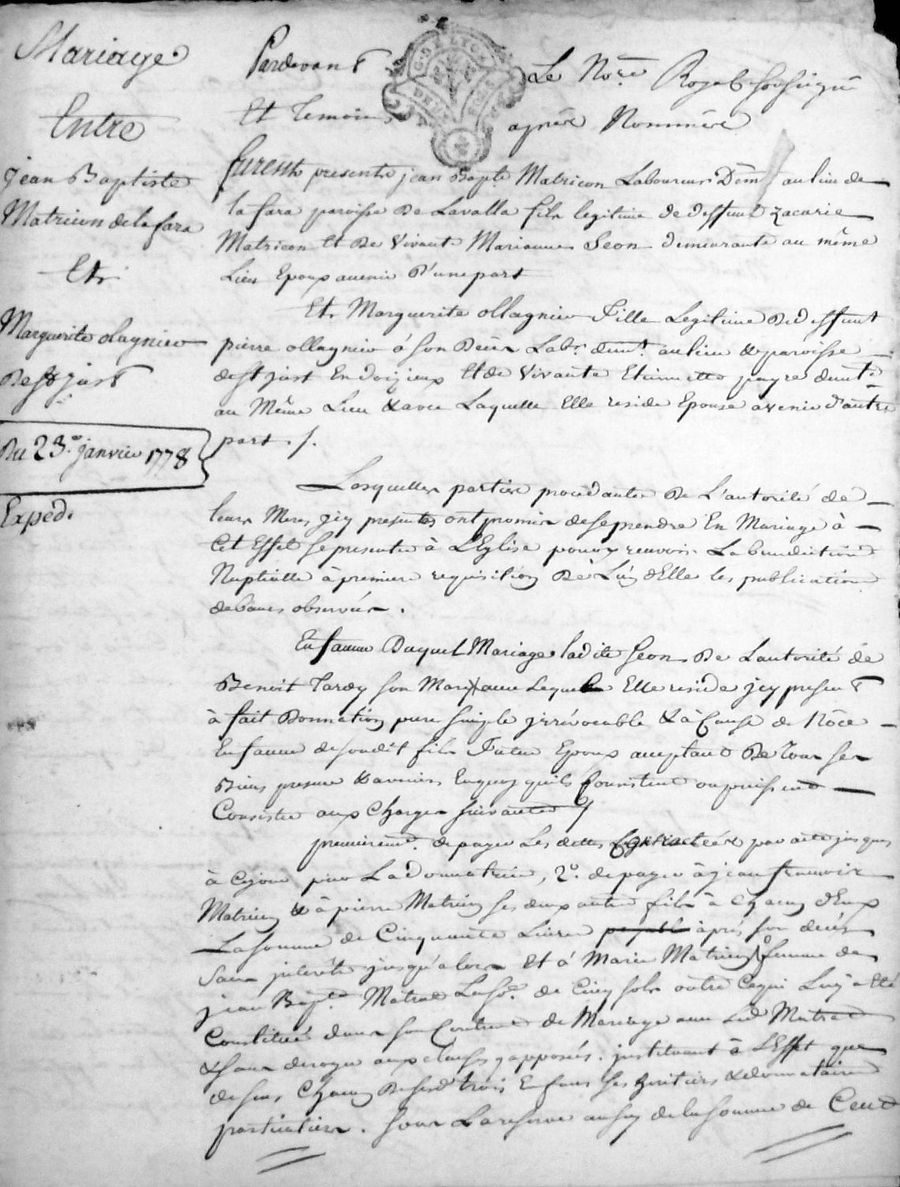 Mariage
Entre
jean Baptiste
Matricon de la fara
Et
Marguerite olagnier
De St just
Du 23e janvier 1778
Exped.
Pardevant Le Nore Royal soussigné
G. DE LYON
DEUX SOLS
Et Temoins après Nommés
furent presents jean Bapte Matricon Laboureur Demt au lieu de
la fara paroisse De Lavalla fils legitime de deffunt zacarie
Matricon Et De vivant Marianne Seon demeurante au même
Lieu Epoux avenir d'une part
Et Marguerite ollagnier Fille Legitime De deffunt
pierre ollagnier à son Decès Labr demt au lieu & paroisse
de st just En doizieux Et de vivante Etiennette payre demte
au Même Lieu & avec Laquelle Elle reside Epouse avenir d'autre
part /.
Lesquelles parties procedantes De L'autorité de
leurs Meres jcy presentes ont promis de se prendre En Mariage à
Cet Effet se presenter à L'Eglise pour y recevoir La benediction
Nuptialle à premiere requisition De L'un d'Elle les publications
de bancs observées.
En faveur Duquel Mariage ladite Seon De L'autorité de
Benoit Tardy son Mary avec Lequel Elle reside jcy present
à fait Donnation pure simple jrrévocable & à Cause de Nôce
En faveur de sondit fils Futur Epoux acceptant De tous ses
Biens presens & avenirs En quoy qu'ils Consistent ou puissent
Consister aux Charges suivantes /
premierement de payer Les dettes Contractées par acte jusques
à Cejour par La donnatrice, 2o. de payer à jean francois
Matricon & à pierre Matricon ses deux autres fils à Chacun d'Eux
La somme de Cinquante Livres après son decès
Sans jnterêts jusqu'alors Et à Marie Matricon femme de
jean Bapte Matras La so. de Cinq sols outre Ce qui Luy a Eté
Constitué dans son Contrat de Mariage avec Led Matras
& sans deroger aux clauses y apposées. jnstituant à L'Effet que
dessus Chacun De sesd trois Enfans ses heritiers & donnataires
particuliers. sous La reserve aussy de la somme de Cent